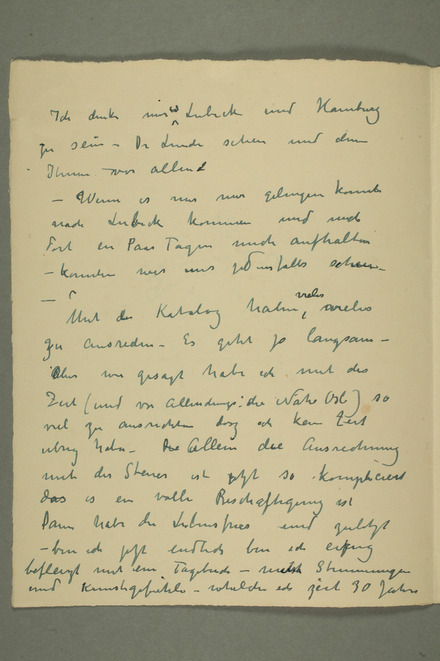 Ich denke in Lubeck und Hamburg
zu sein – Dr Linde sehen und dem
Ihnen – vor allend
– Wenn es mir nur gelingen konnte
nach Lubeck kommen und mich
Fort ein Paar Tagen mich aufhalten
– konnten wir uns jedenfalls sehen –
–
Mit der Katalog haben vieles
zu ausreden – Es geht so langsam –
Aber wie gesagt habe ich mit das
Zeit (und vor Allendings: die Nähe Osl) so
viel zu ausrichten dasz ich kein Zeit
ubrig habe – Allein die Ausrechnung
mit des Steuer ist jetzt so kompliciert
das is ein volle Beschaftigung ist
Dann habe die Lebensfries und
– bin ich jetzt endlich bin ich eifrig
mit ein Tagebuch – Stimmungen
und – ich seit 30 Jahre